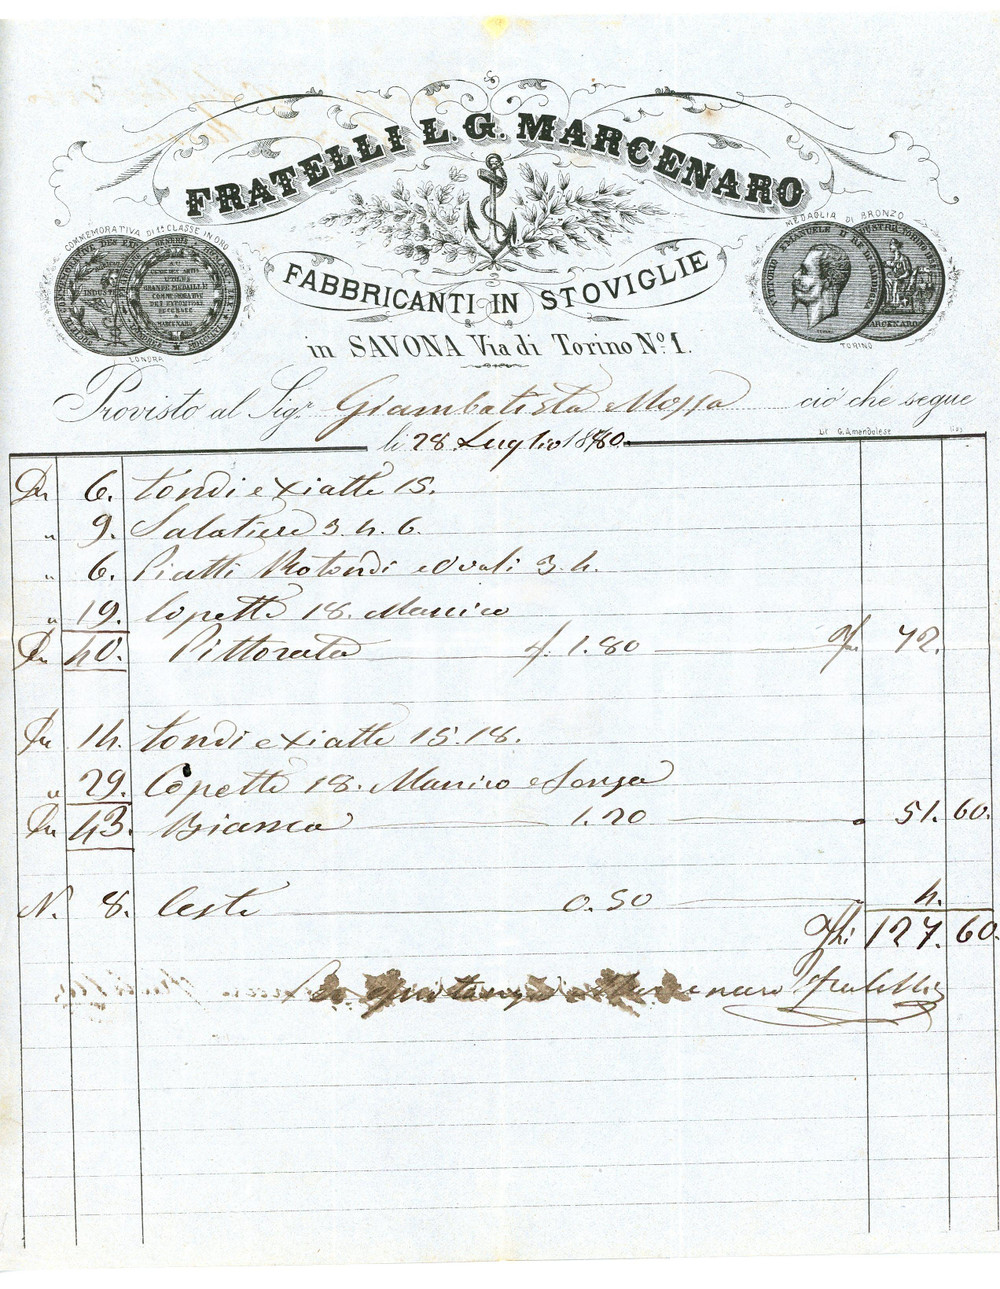 FRATELLI L. G. MARCENARO
COMMEMORATIVA DI 1ª CLASSE IN ORO
LONDRA
MEDAGLIA DI BRONZO
TORINO
FABBRICANTI IN STOVIGLIE
in SAVONA Via di Torino Nº 1.
Provisto al Sigr. Giambatista Mossa ciò che segue
Lit. G. Amandolese
li 28. Luglio 1880.
Dn 6. tondi e xiatte 15.
" 9. Salatiere 3. 4. 6.
" 6. Piatti Rotondi e Ovali 3. 4.
" 19. Copette 18. Manico
Dn 40. Pitturata f. 1.80 fr. 72.
Dn 14. tondi e xiatte 15. 18.
" 29. Copette 18. Manico e Senza
Dn 43. Bianca 1.20 51. 60.
N. 8. Ceste 0.50 4.
127. 60.
Marcenaro Fratelli